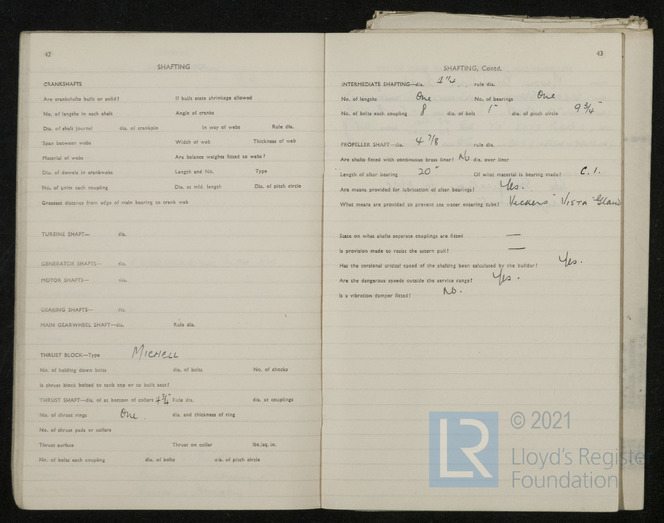 42
SHAFTING
CRANKSHAFTS
Are crankshafts built or solid? If built state shrinkage allowed
No. of lengths in each shaft Angle of cranks
Dia. of shaft journal dia. of crankpin in way of webs Rule dia.
Span between webs Width of web Thickness of web
Material of webs Are balance weights fitted to webs?
Dia. of dowels in crankwebs Length and No. Type
No. of bolts each coupling Dia. at mid. length Dia. of pitch circle
Greatest distance from edge of main bearing to crank web
TURBINE SHAFT— dia.
GENERATOR SHAFTS— dia.
MOTOR SHAFTS— dia.
GEARING SHAFTS— dia.
MAIN GEARWHEEL SHAFT—dia. Rule dia.
THRUST BLOCK—Type MICHELL
No. of holding down bolts dia. of bolts No. of chocks
Is thrust block bolted to tank top or to built seat?
THRUST SHAFT—dia. of at bottom of collars 4¾" Rule dia. dia. at couplings
No. of thrust rings One dia. and thickness of ring
No. of thrust pads or collars
Thrust surface Thrust on collar lbs./sq. in.
No. of bolts each coupling dia. of bolts dia. of pitch circle
43
SHAFTING, Contd.
INTERMEDIATE SHAFTING—dia. rule dia.
No. of lengths One No. of bearings One
No. of bolts each coupling 8 dia. of bolts 1" dia. of pitch circle 9¾"
PROPELLER SHAFT—dia. 4 7/8 rule dia.
Are shafts fitted with continuous brass liner? No dia. over liner
Length of after bearing 20" Of what material is bearing made? C.I.
Are means provided for lubrication of after bearing? Yes.
What means are provided to prevent sea water entering tube? Vickers Vista Gland
State on what shafts separate couplings are fitted —
Is provision made to resist the astern pull? —
Has the torsional critical speed of the shafting been calculated by the builder? Yes.
Are the dangerous speeds outside the service range? Yes.
Is a vibration damper fitted? No.
© 2021
LR
Lloyd's Register
Foundation